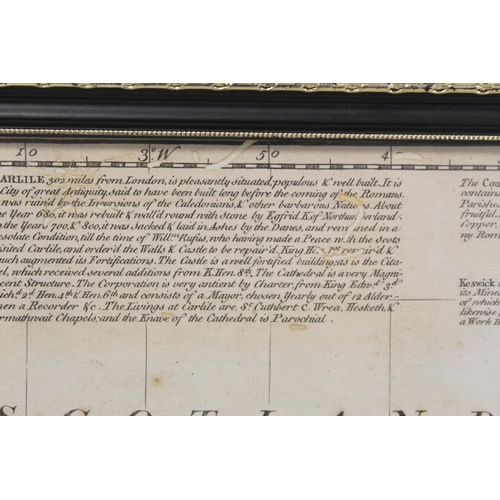 10 3°W 50 4
CARLILE, 302 miles from London, is pleasantly situated, populous & well built. It is
City of great Antiquity, said to have been built long before the coming of the Romans.
was ruin'd by the Incursions of the Caledonians, & other barbarous Nations. About
the Year 680, it was rebuilt & wall'd round with Stone by Egfrid K. of Northumberland.
the Years 700, & 800, it was sacked & laid in Ashes by the Danes, and remained in a
desolate Condition, till the time of Will.m Rufus, who having made a Peace wth. the Scots
visited Carlile, and order'd the Walls & Castle to be repair'd. King Hen. 1st. repair'd &
much augmented its Fortifications. The Castle is a well fortified building, as is the Cita-
del, which received several additions from K. Hen. 8th. The Cathedral is a very Magni-
ficent Structure. The Corporation is very antient by Charter, from King Edw.d 3d.
Rich.d 2d. Hen. 4th. & Hen. 6th. and consists of a Mayor, chosen Yearly out of 12 Alder-
men a Recorder &c. The Livings at Carlile are, St. Cuthbert C. Wrea, Hesketh, &
Armathwait Chapels; and the Knave of the Cathedral is Parochial.
The Cou
contains
Parishes
fruitful
Copper,
ny Rom
Keswick
its Mine
likewise
a Work H
S C O T L A N D